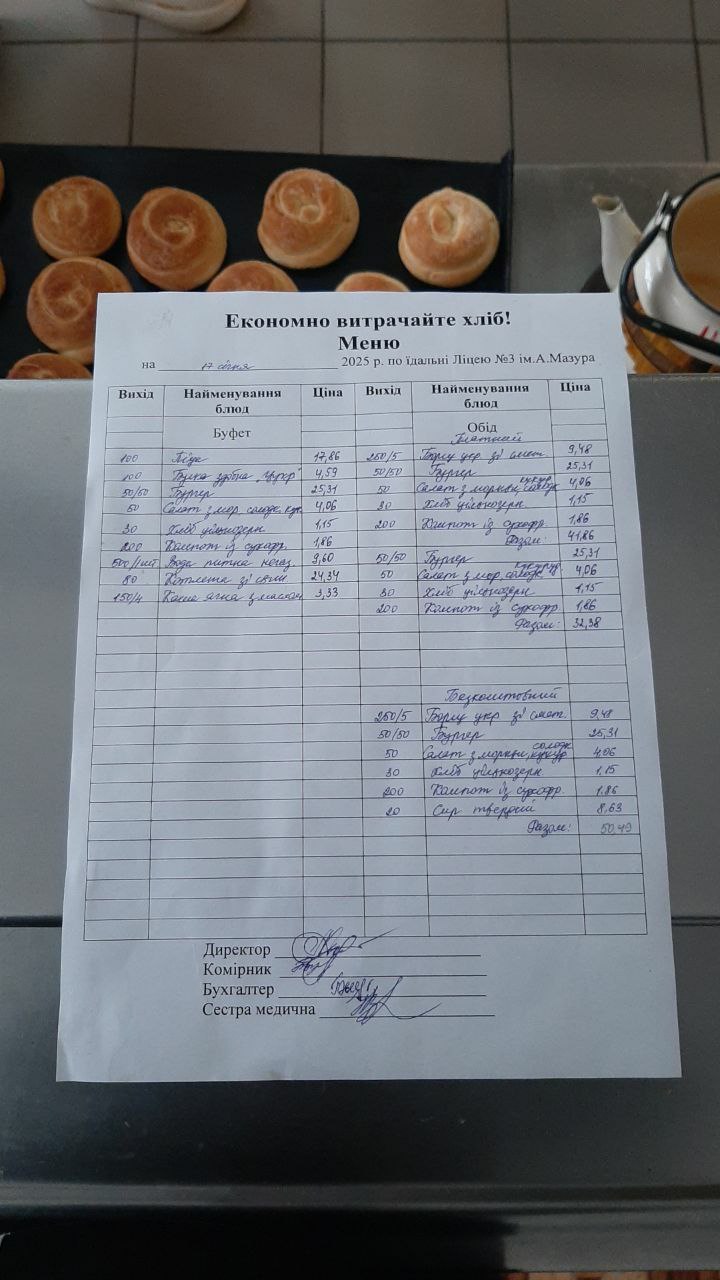 Економно витрачайте хліб!
Меню
на 17 січня 2025 р. по їдальні Ліцею №3 ім.А.Мазура
Вихід Найменування блюд Ціна Вихід Найменування блюд Ціна
Буфет Обід
Платний
100 Піца 17,86 250/5 Борщ укр. зі смет. 9,48
100 Булка здобна "Цукр" 4,59 50/50 Бургер 25,31
50/50 Бургер 25,31 50 Салат з моркви, солодк. кукур 4,06
50 Салат з мор. солодк. кук. 4,06 30 Хліб цільнозерн 1,15
30 Хліб цільнозерн. 1,15 200 Компот із сухофр. 1,86
200 Компот із сухофр. 1,86 Разом: 41,86
500/1шт Вода питна негаз. 9,60 50/50 Бургер 25,31
80 Котлета зі свин 24,34 50 Салат з мор. солодк. кукур. 4,06
150/4 Каша ячна з маслом 3,33 30 Хліб цільнозерн 1,15
200 Компот із сухофр. 1,86
Разом: 32,38
Безкоштовний
250/5 Борщ укр зі смет. 9,48
50/50 Бургер 25,31
50 Салат з моркви, солодк. кукур 4,06
30 Хліб цільнозерн 1,15
200 Компот із сухофр. 1,86
20 Сир твердий 8,63
Разом: 50,49
Директор
Комірник
Бухгалтер
Сестра медична